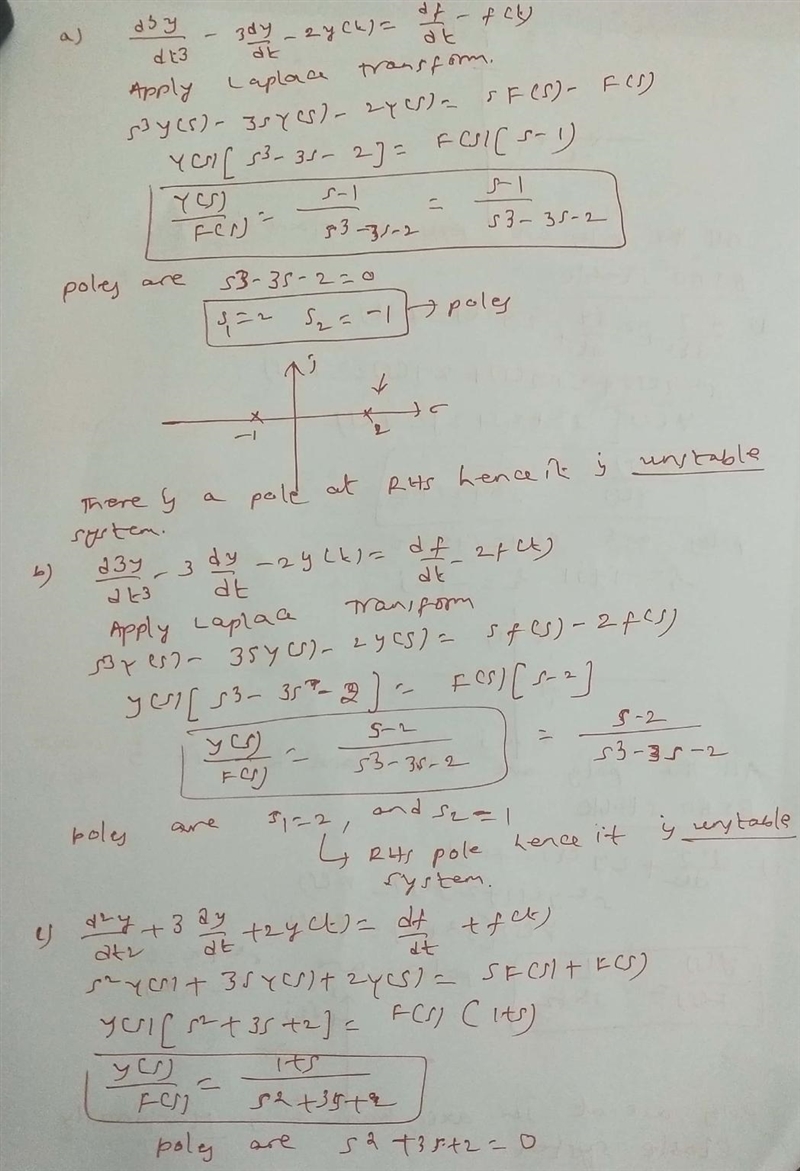 a) d3y/dt3 - 3dy/dt - 2y(t) = df/dt - f(t)
Apply Laplace transform.
s3y(s) - 3sY(s) - 2Y(s) = sF(s) - F(s)
Y(s)[s3 - 3s - 2] = F(s)(s-1)
Y(s)/F(s) = s-1/s3-3s-2 = s-1/s3-3s-2
poles are s3-3s-2=0
s1=2 s2=-1 → poles
j
-1 2 σ
There is a pole at RHS hence it is unstable
system.
b) d3y/dt3 - 3 dy/dt - 2y(t) = df/dt - 2f(t)
Apply Laplace transform
s3Y(s) - 3sY(s) - 2y(s) = sf(s) - 2f(s)
y(s)[s3 - 3s - 2] = F(s)[s-2]
y(s)/F(s) = s-2/s3-3s-2 = s-2/s3-3s-2
poles are s1=2, and s2=1
↳ RHS pole hence it is unstable
system.
c) d2y/dt2 + 3 dy/dt + 2y(t) = df/dt + f(t)
s2y(s) + 3sY(s) + 2y(s) = sF(s) + F(s)
y(s)[s2+3s+2] = F(s)(1+s)
y(s)/F(s) = 1+s/s2+3s+2
poles are s2+3s+2=0